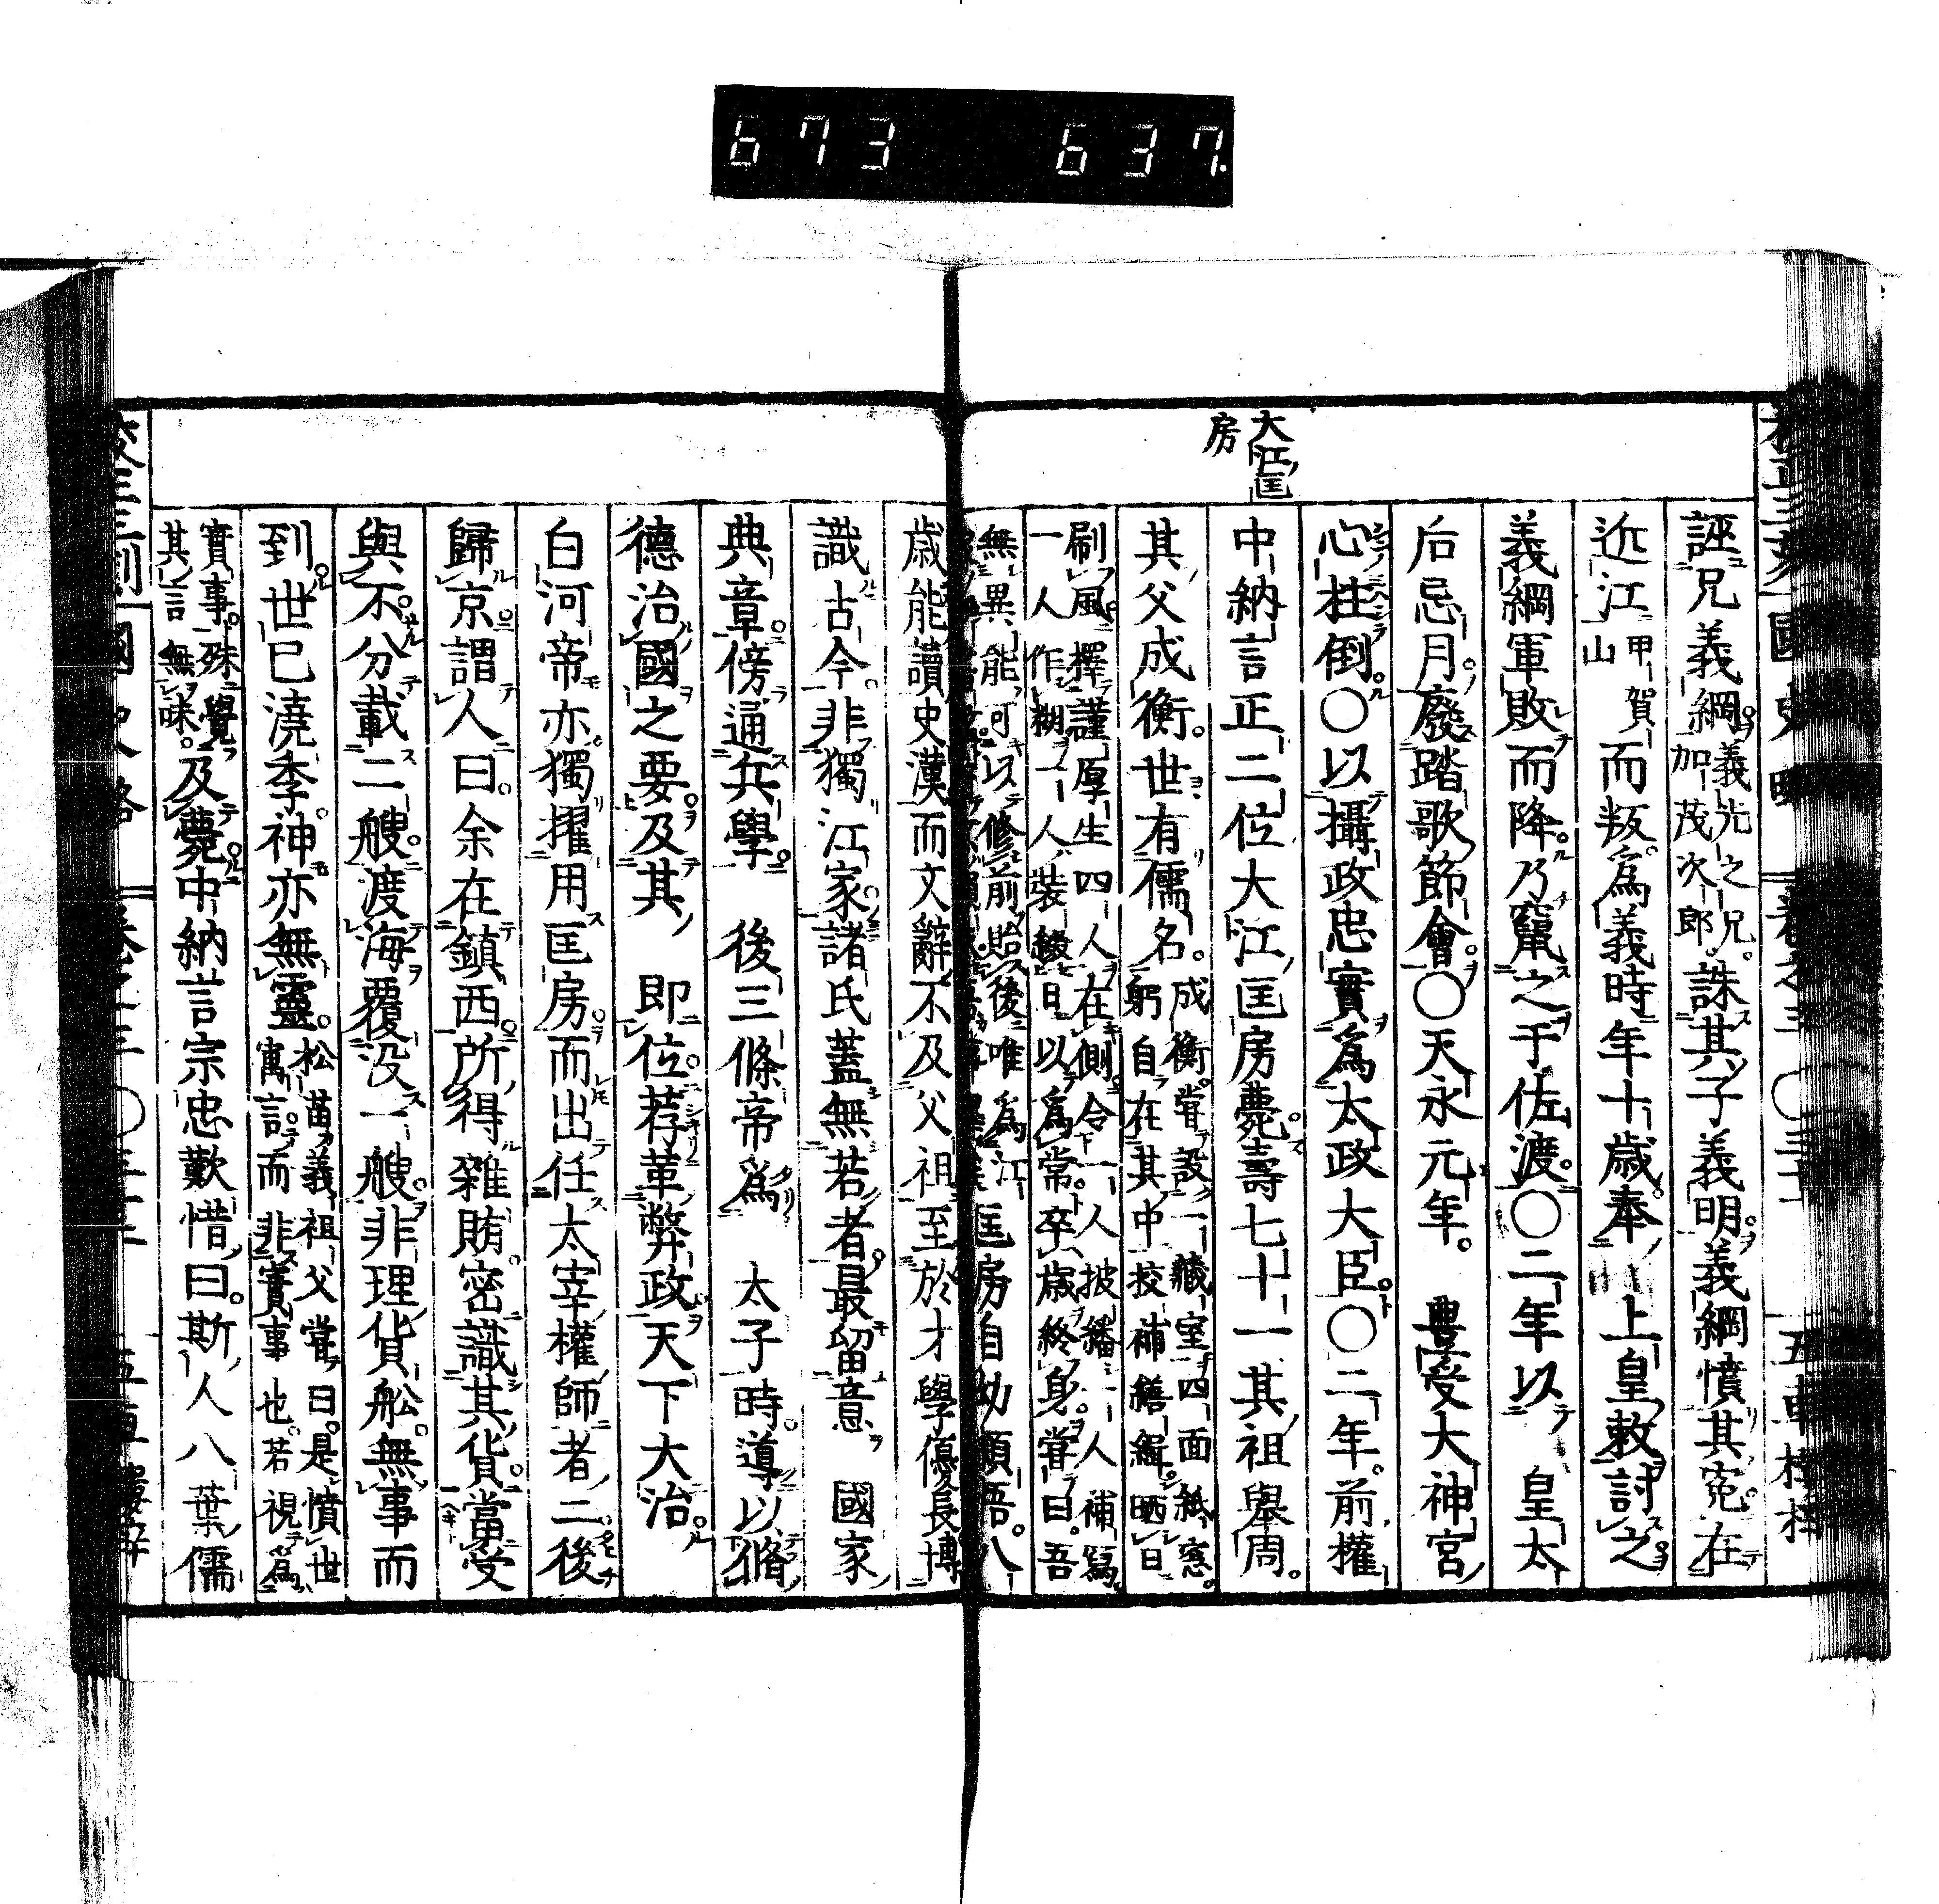 673 637.
大江匡
房
誣兄義綱義光之兄。加茂次郎。誅其子義明。義綱憤其寃。在
近江甲賀山而叛。爲義時年十歲。奉 上皇敕討之。
義綱軍敗而降。乃竄之于佐渡。〇二年以 皇太
后忌月。廢踏歌節會。〇天永元年。 豊受大神宮
心柱倒。〇以攝政忠實爲太政大臣。〇二年。前權
中納言正二位大江匡房薨。壽七十一。其祖舉周。
其父成衡。世有儒名。成衡。嘗設一藏室。四面紙窓。躬自在其中校補繕緝。晒日
刷風。擇謹厚生四人在側。令一人披繙。一人補寫。一人作糊。一人裝綴。日以爲常。卒歲終身。嘗曰。吾
無異能。可以修前貽後。唯爲江
匡房自幼穎悟。八
歲能讀史漢。而文辭不及父祖。至於才學優長。博
識古今。非獨江家。諸氏蓋無若者。最留意 國家
典章。傍通兵學。 後三條帝爲 太子時。導以脩
德治國之要。及其 即位。荐革弊政。天下大治。
白河帝亦獨擢用匡房。而出任太宰權師者二。後
歸京。謂人曰。余在鎮西。所得雜賄。密識其貨當受
與不。分載二艘。渡海覆没一艘。非理貨舩。無事而
到。世已澆季。神亦無靈。松苗義祖父嘗曰。是憤世寓言。而非實事也。若視爲
實事。殊覺其言無味。及薨。中納言宗忠歎惜。曰。斯人八葉儒